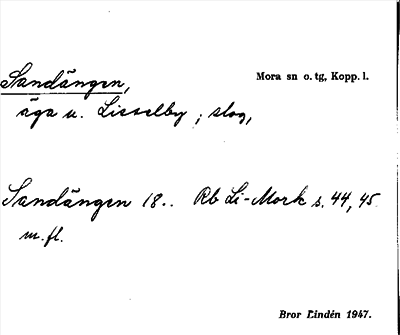 Sandängen, Mora sn o. tg, Kopp. l.
äga u. Lisselby ; slog,
Sandängen 18.. Rb Li-Mork s. 44, 45
m.fl.
Bror Lindén 1947.